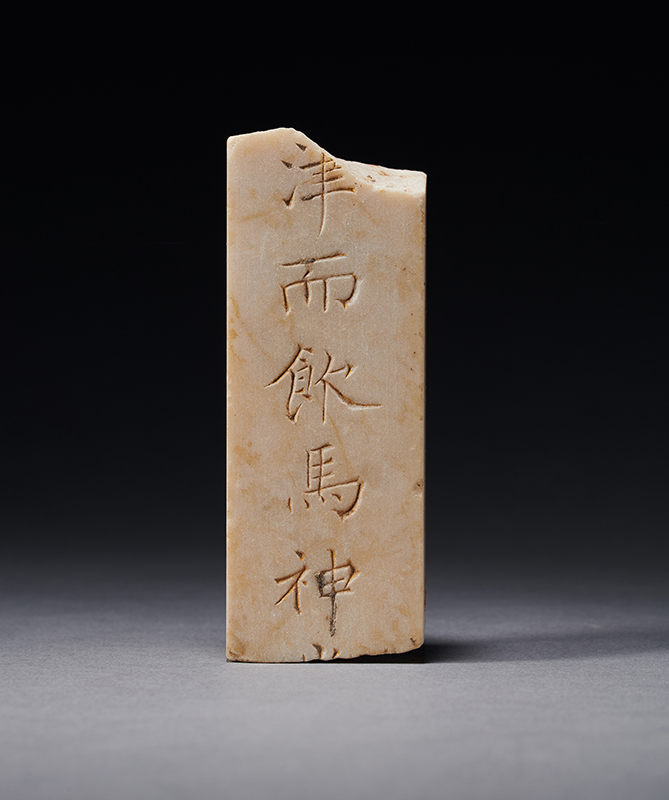 津而飲馬神